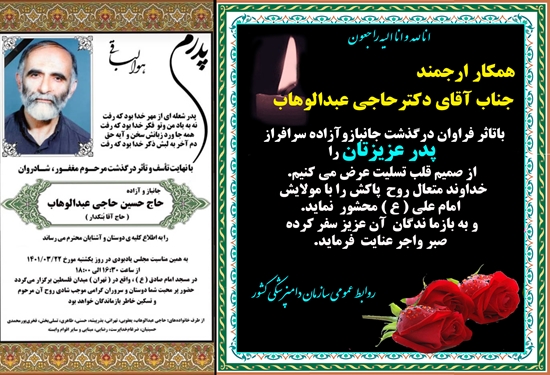 پدرم
هوالباقی
پدر شعله ای از مهر خدا بود که رفت
نه به یاد من وتو فکر خدا بود که رفت
همه جا ورد زبانش سخن و آیه حق
دم آخر به لبش ذکر خدا بود که رفت
با نهایت تأسف و تأثر درگذشت مرحوم مغفور، شادروان
جانباز و آزاده
حاج حسین حاجی عبدالوهاب
( حاج آقا بنکدار )
را به اطلاع کلیه ی دوستان و آشنایان محترم می رساند
به همین مناسبت مجلس یادبودی در روز یکشنبه مورخ ۱۴۰۱/۰۳/۲۲
از ساعت ۱۶:۳۰ الی ۱۸:۰۰
در مسجد امام صادق ( ع ) ، واقع در ( تهران ) میدان فلسطین برگزار می‌گردد
حضور پر محبت شما دوستان و سروران گرامی موجب شادی روح آن مرحوم
و تسکین خاطر بازماندگان خواهد بود
از طرف خانواده‌های: حاجی عبدالوهاب،
انا لله و انا الیه راجعون
همکار ارجمند
جناب آقای دکتر حاجی عبدالوهاب
باتاثر فراوان درگذشت جانبازوآزاده سرافراز
پدر عزیزتان را
از صمیم قلب تسلیت عرض می کنیم.
خداوند متعال روح پاکش را با مولایش
امام علی ( ع ) محشور نماید.
و به بازماندگان آن عزیز سفر کرده
صبر واجر عنایت فرماید.
روابط عمومی سازمان دامپزشکی کشور